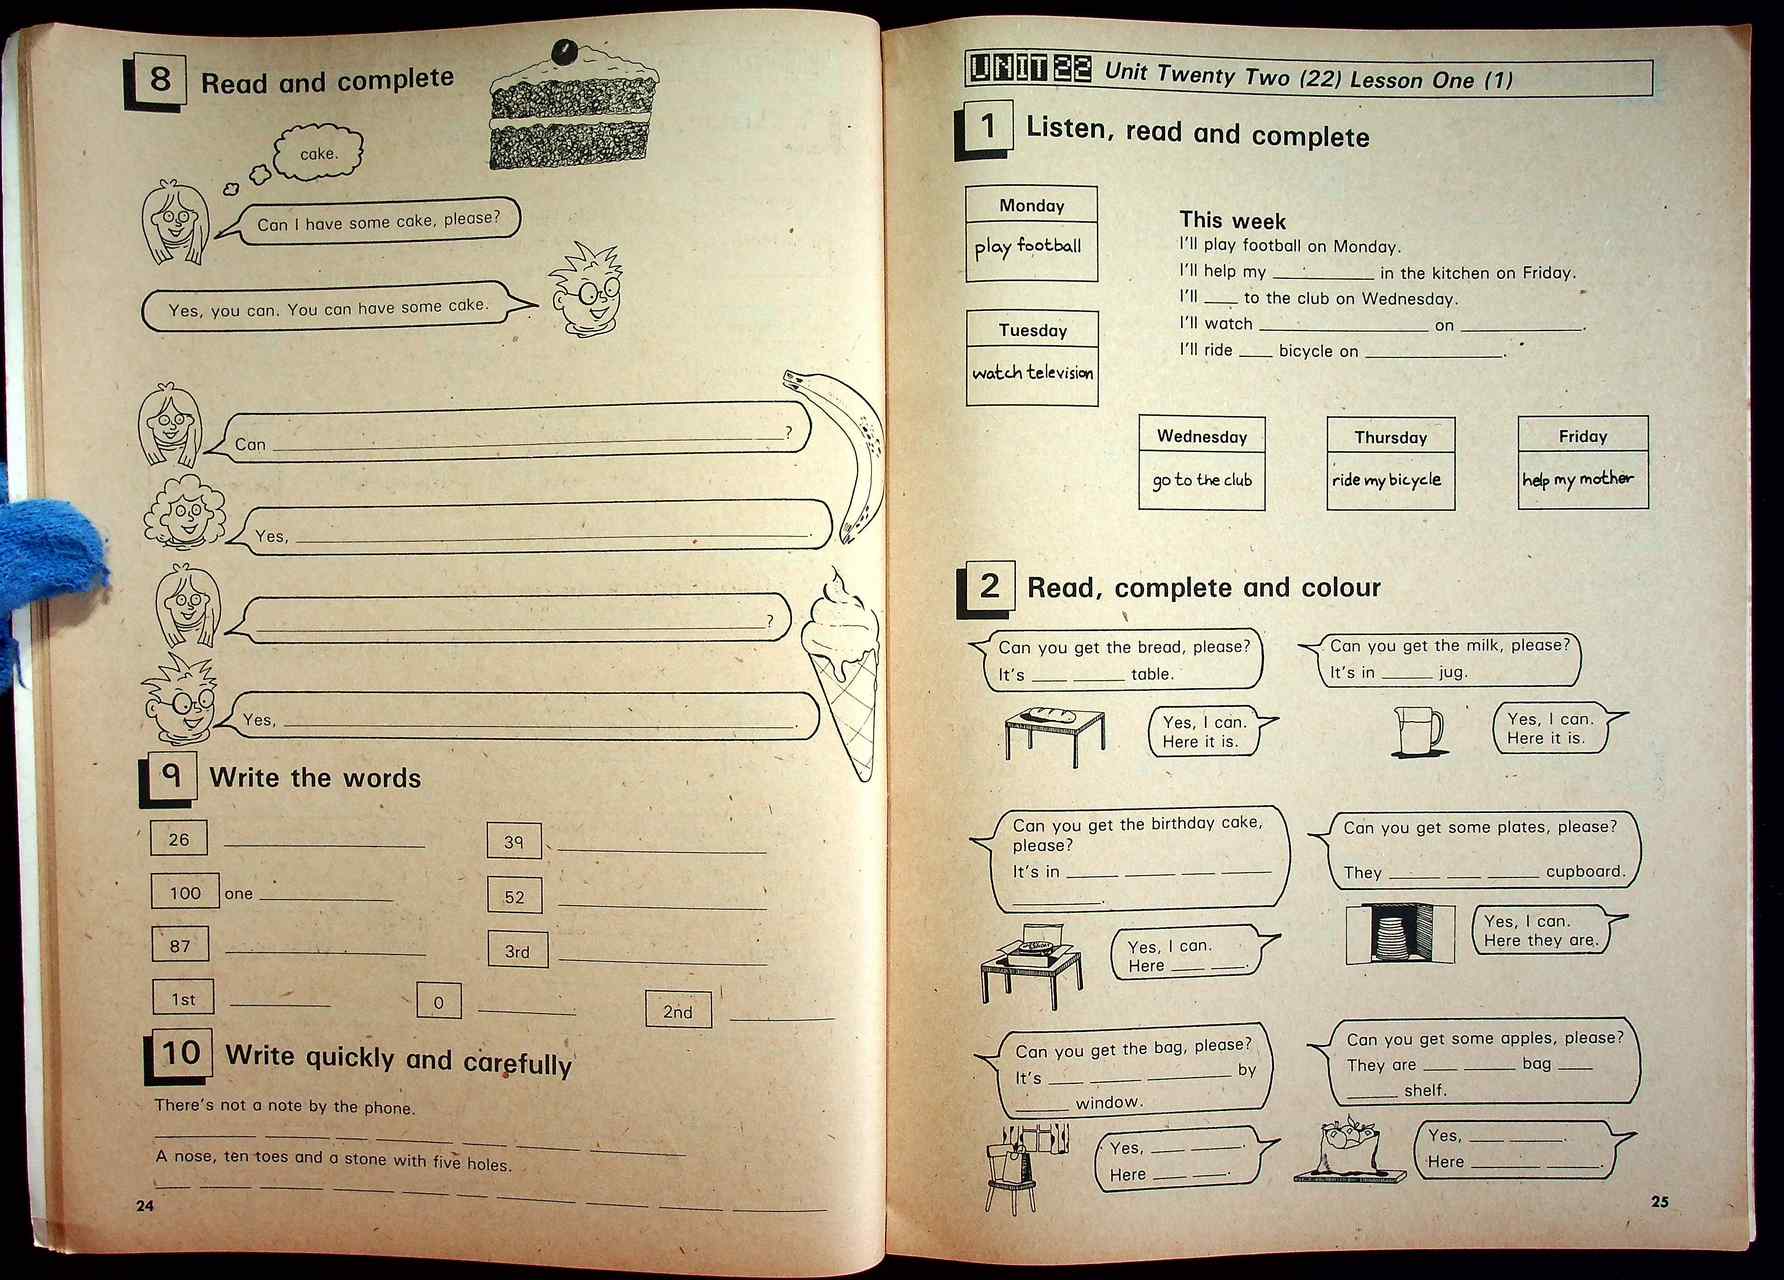 8 Read and complete
cake.
Can I have some cake, please?
Yes, you can. You can have some cake.
Can ______________?
Yes, ______________.
______________?
Yes, ______________.
9 Write the words
26 ______ 39 ______
100 one ______ 52 ______
87 ______ 3rd ______
1st ______ 0 ______ 2nd ______
10 Write quickly and carefully
There's not a note by the phone.
A nose, ten toes and a stone with five holes.
24
UNIT 22 Unit Twenty Two (22) Lesson One (1)
1 Listen, read and complete
Monday
play football
Tuesday
watch television
This week
I'll play football on Monday.
I'll help my ______ in the kitchen on Friday.
I'll ____ to the club on Wednesday.
I'll watch ______ on ______.
I'll ride ____ bicycle on ______.
Wednesday
go to the club
Thursday
ride my bicycle
Friday
help my mother
2 Read, complete and colour
Can you get the bread, please?
It's ____ ____ table.
Yes, I can.
Here it is.
Can you get the milk, please?
It's in ____ jug.
Yes, I can.
Here it is.
Can you get the birthday cake,
please?
It's in ____ ____ ____ ____
______.
Yes, I can.
Here ____ ____.
Can you get some plates, please?
They ____ ____ ____ cupboard.
Yes, I can.
Here they are.
Can you get the bag, please?
It's ____ ____ ____ by
____ window.
Yes, ____ ____.
Here ____ ____.
Can you get some apples, please?
They are ____ ____ bag ____
____ shelf.
Yes, ____ ____.
Here ____ ____.
25